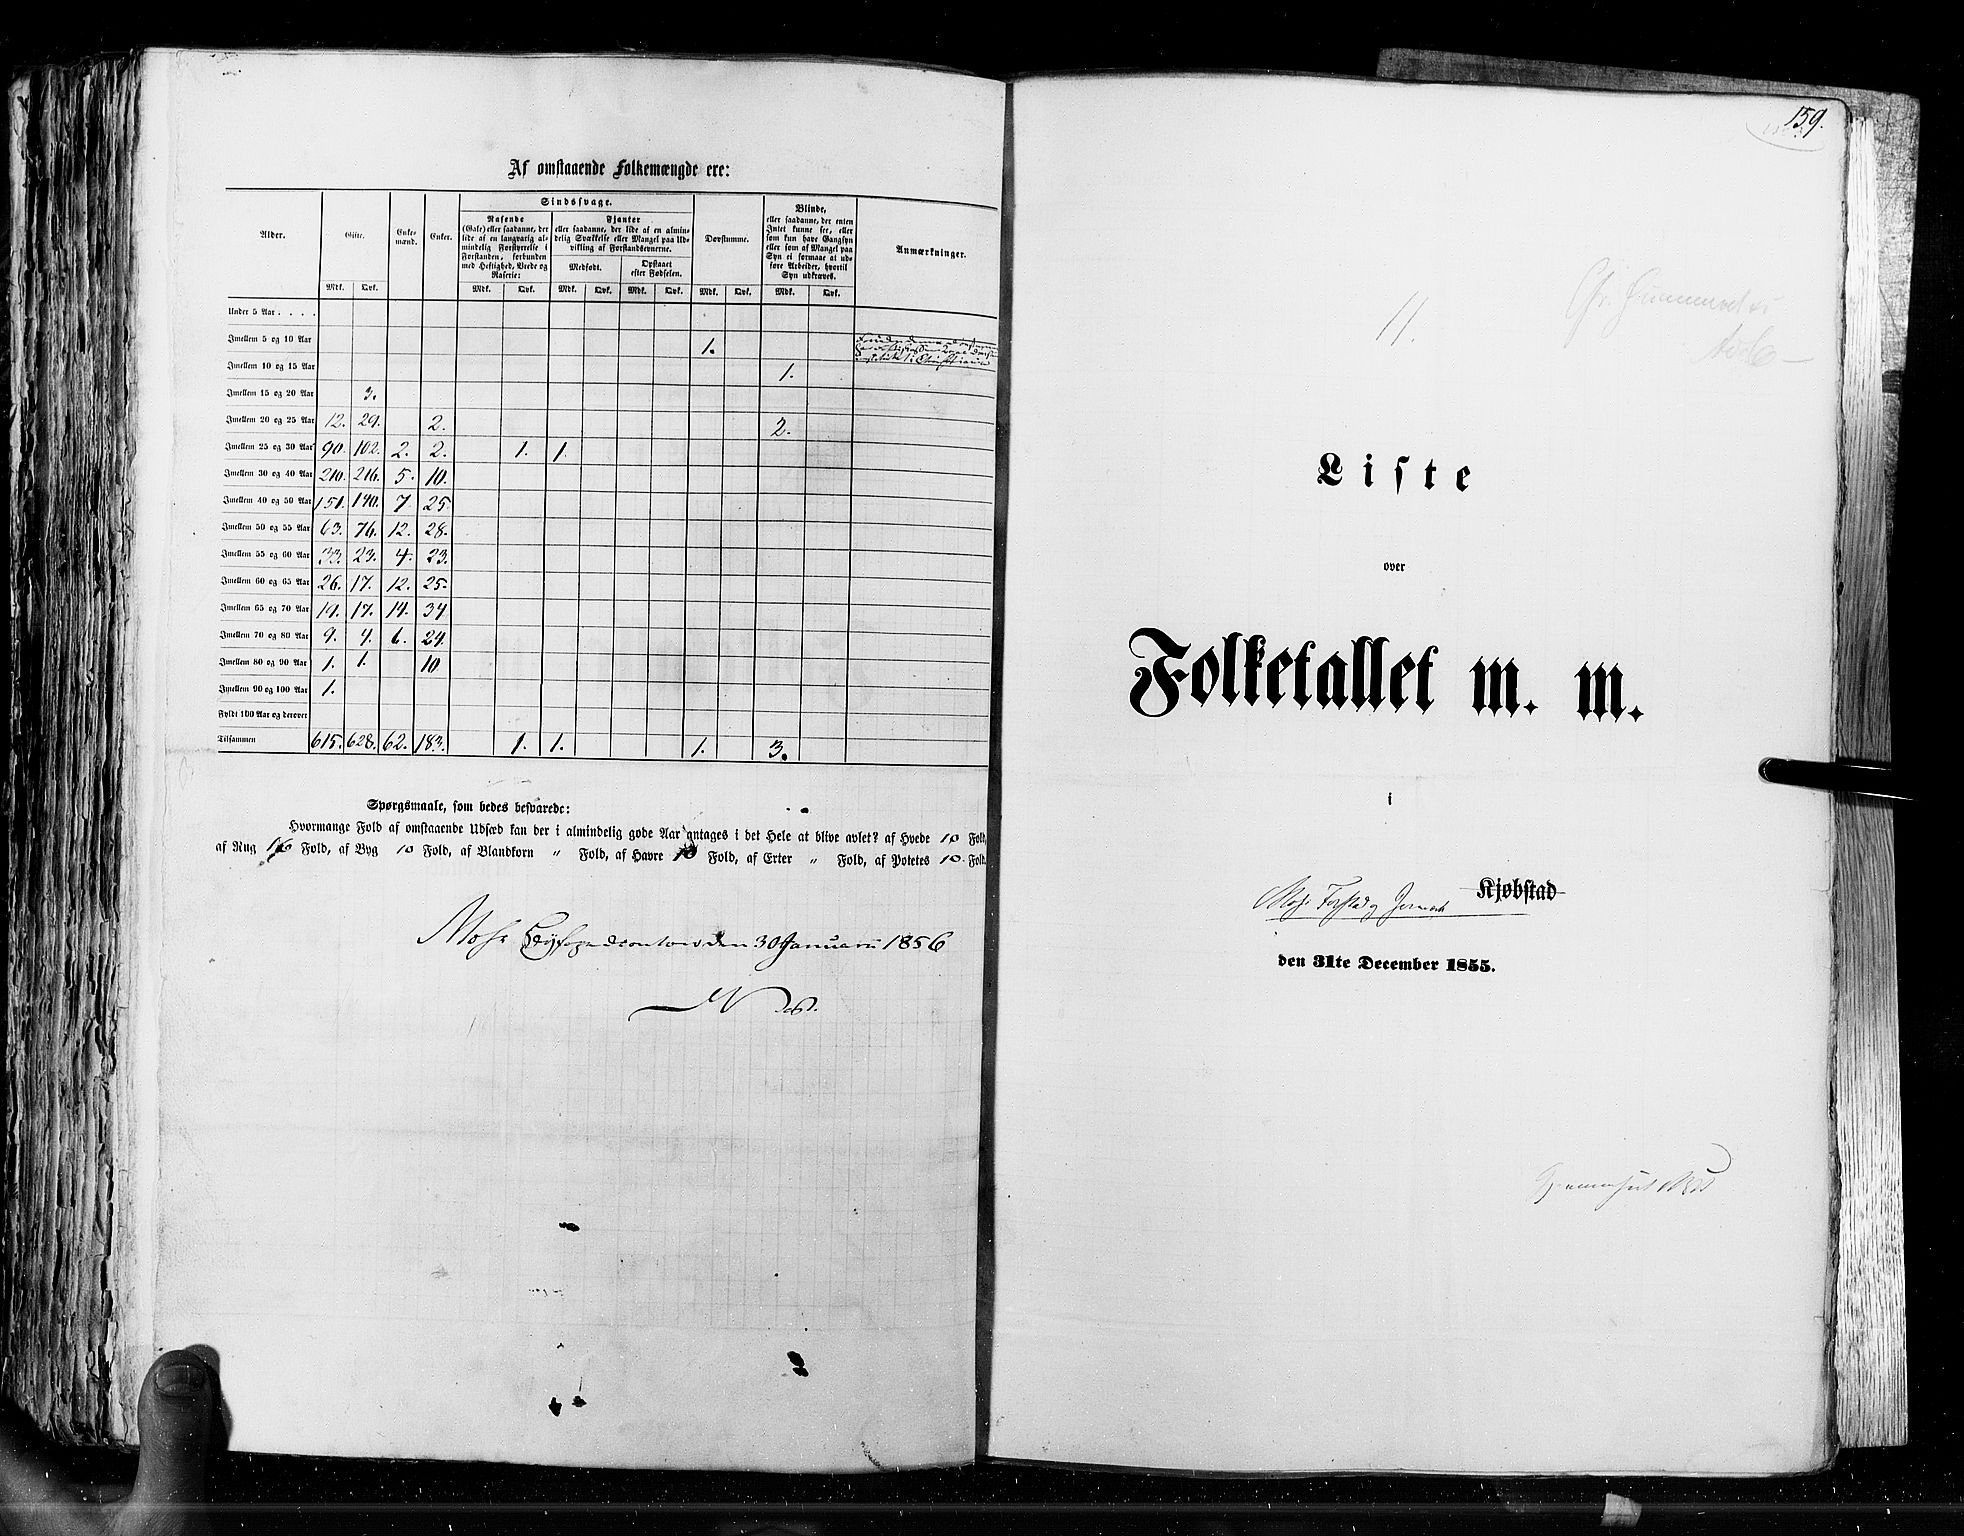 Af omstaaende Folkemængde ere:
Alder. Gifte. Enke-mænd. Enker. Sindssvage. Døvstumme. Blinde, Anmærkninger.
Rasende
(Gale) eller saadanne, der
lide af en langvarig al-
mindelig Forstyrrelse i
Forstanden, forbunden
med Heftighed, Vrede og
Raserie:
Fjanter
eller saadanne, der lide af en almin-
delig Svækkelse eller Mangel paa Ud-
vikling af Forstandsevnerne.
Medfødt. Opstaaet
efter Fødselen.
eller saadanne, der enten
Intet kunne see, eller
som kun have Gangsyn
eller som af Mangel paa
Syn ei formaae at ud-
føre Arbeider, hvortil
Syn udkræves.
Mdk. Qvk. Mdk. Qvk. Mdk. Qvk. Mdk. Qvk. Mdk. Qvk. Mdk. Qvk.
Under 5 Aar . . . .
Imellem 5 og 10 Aar 1.
Imellem 10 og 15 Aar 1.
Imellem 15 og 20 Aar 3.
Imellem 20 og 25 Aar 12. 29. 2. 2.
Imellem 25 og 30 Aar 90. 102. 2. 2. 1. 1.
Imellem 30 og 40 Aar 210. 216. 5. 10.
Imellem 40 og 50 Aar 151. 140. 7. 25.
Imellem 50 og 55 Aar 63. 76. 12. 28.
Imellem 55 og 60 Aar 33. 23. 4. 23.
Imellem 60 og 65 Aar 26. 17. 12. 25.
Imellem 65 og 70 Aar 19. 17. 14. 34
Imellem 70 og 80 Aar 9. 4. 6. 24.
Imellem 80 og 90 Aar 1. 1. 10
Imellem 90 og 100 Aar 1.
Fyldt 100 Aar og derover
Tilsammen 615. 628. 62. 183. 1. 1. 1. 3.
Spørgsmaale, som bedes besvarede:
Hvormange Fold af omstaaende Udsæd kan der i almindelig gode Aar antages i det Hele at blive avlet? af Hvede 10 Fold,
af Rug 16 Fold, af Byg 10 Fold, af Blandkorn " Fold, af Havre 10 Fold, af Erter " Fold, af Potetes 10. Fold.
Moss Byfogedcontoir den 30 Januari 1856
159.
11.
Liste
over
Folketallet m. m.
i
Moss Forstad Jernverk Kjøbstad
den 31te December 1855.